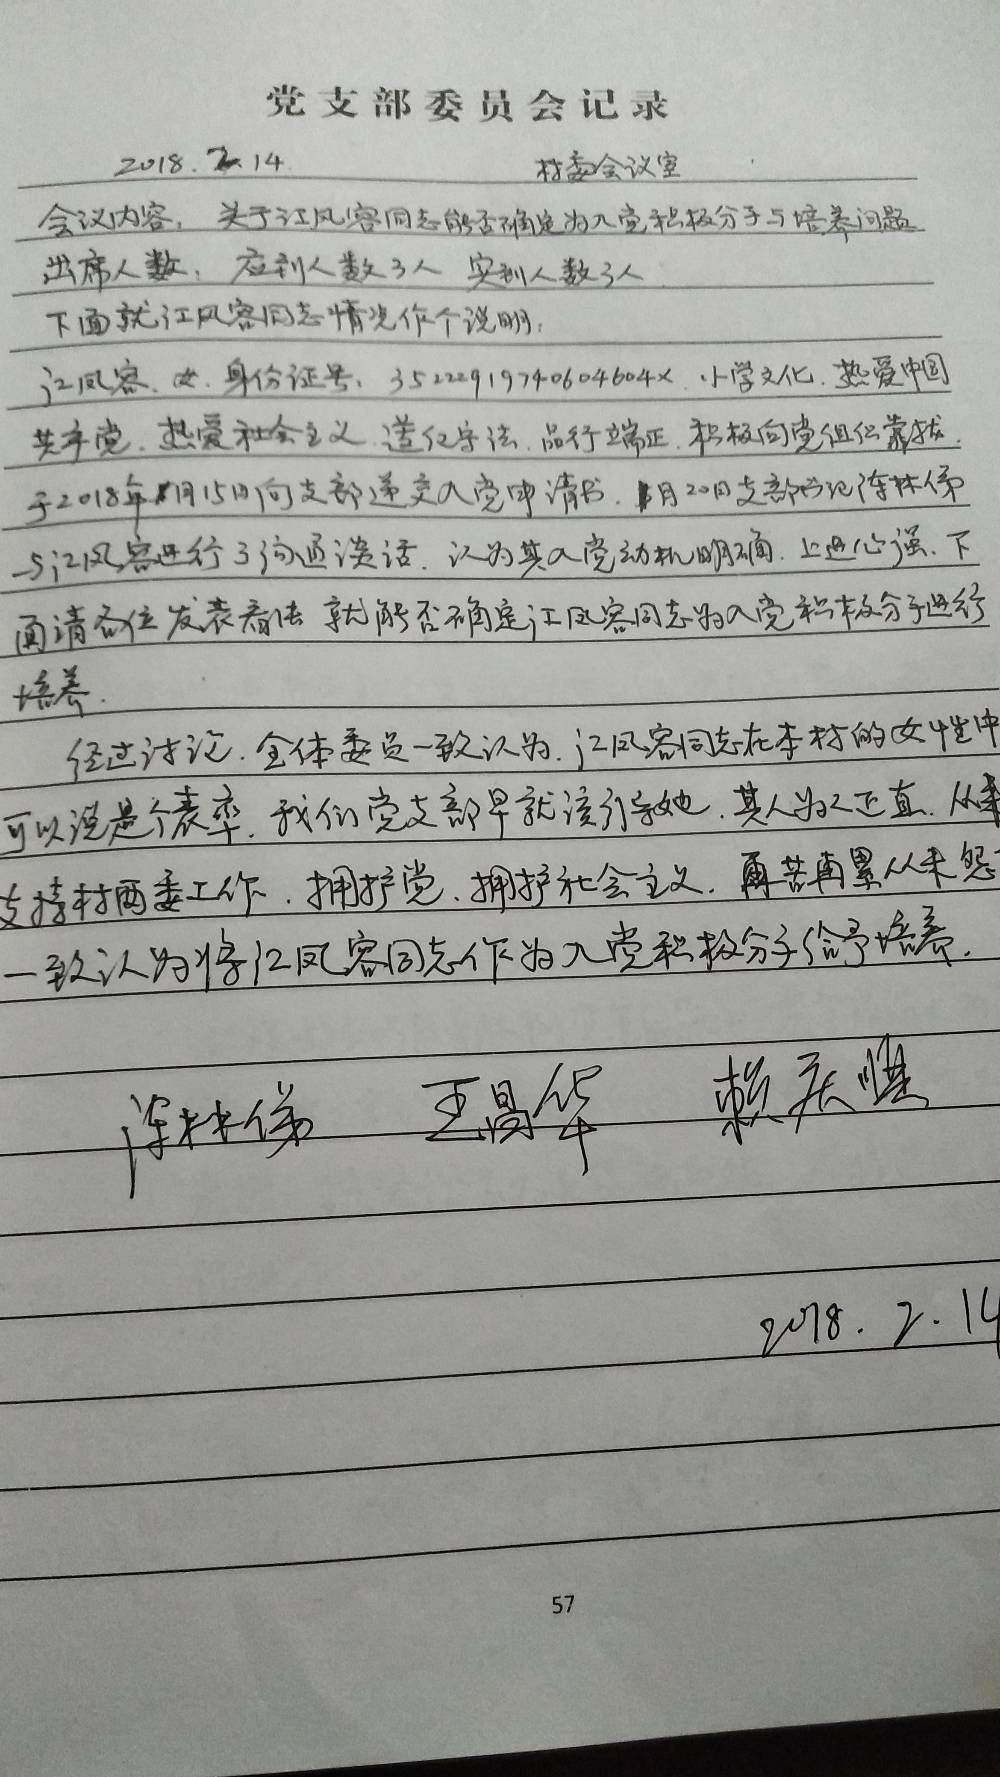 党支部委员会记录
2018.2.14 村委会议室
会议内容：关于江凤容同志能否确定为入党积极分子与培养问题
出席人数：应到人数3人 实到人数3人
下面就江凤容同志情况作个说明：
江凤容、女、身份证号：35222919740604604X、小学文化、热爱中国
共产党、热爱社会主义、遵纪守法、品行端正、积极向党组织靠拢、
于2018年1月15日向支部递交入党申请书、1月20日支部书记陈林俤
与江凤容进行了沟通谈话、认为其入党动机明确、上进心强、下
面请各位发表看法 就能否确定江凤容同志为入党积极分子进行
培养.
经过讨论、全体委员一致认为、江凤容同志在本村的女性中
可以说是个表率、我们党支部早就该引导她、其人为人正直、从来
支持村两委工作、拥护党、拥护社会主义、再苦再累从未怨
一致认为将江凤容同志作为入党积极分子给予培养.
陈林俤 王昌华 赖庆
2018.2.14
57